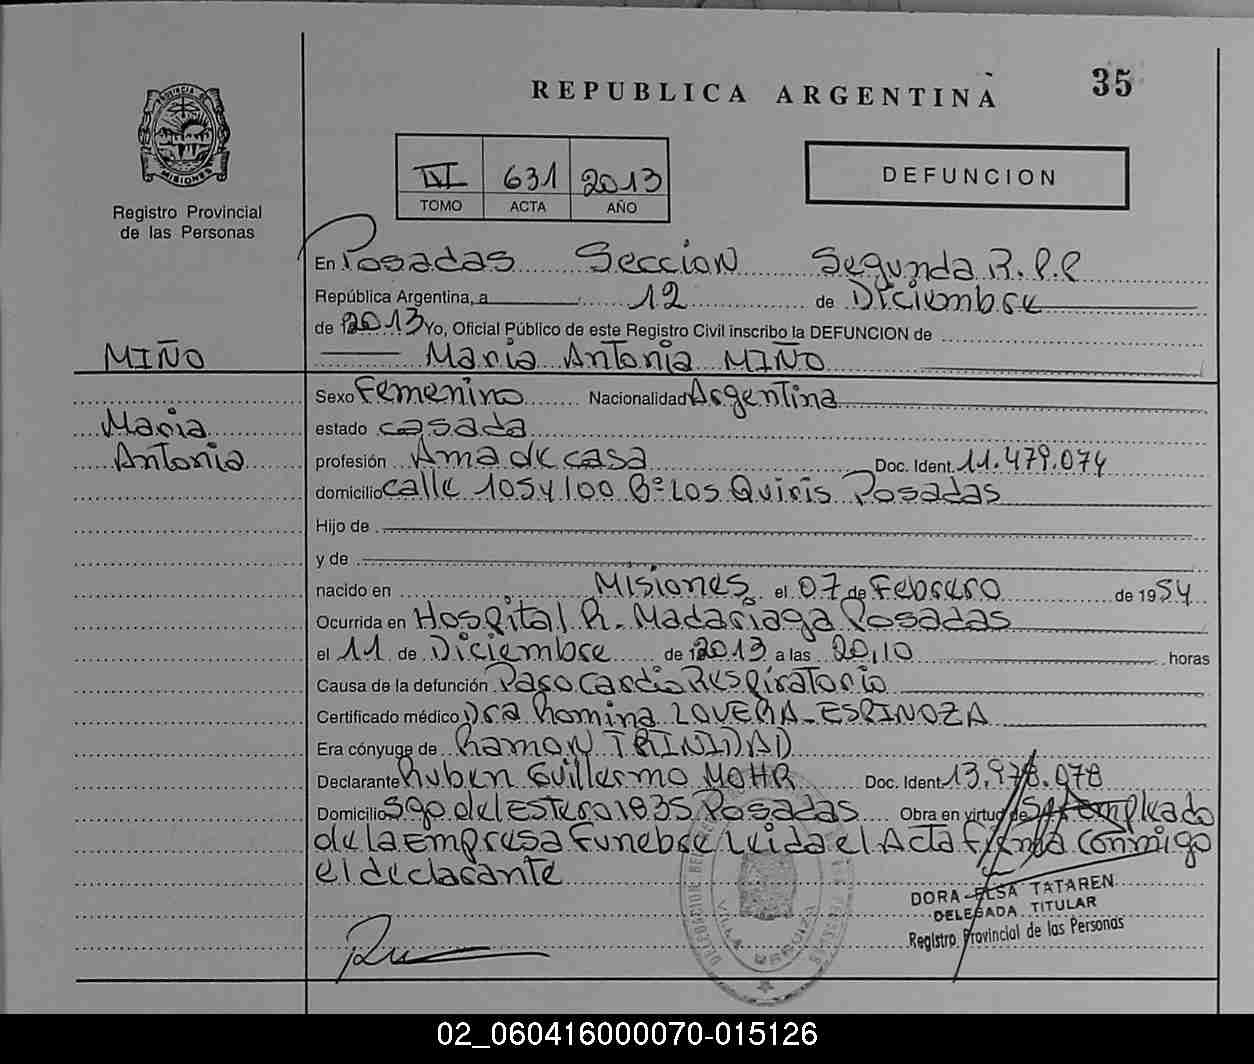 REPUBLICA ARGENTINA
35
PROVINCIA DE MISIONES
Registro Provincial
de las Personas
IVI 631 2013
TOMO ACTA AÑO
DEFUNCION
En Posadas Seccion Segunda R.P.P
República Argentina, a 12 de Diciembre
de 2013 Yo, Oficial Público de este Registro Civil inscribo la DEFUNCION de
MIÑO
Maria Antonia MIÑO
Sexo Femenino Nacionalidad Argentina
Maria
estado casada
Antonia
profesión Ama de casa Doc. Ident. 11.479.074
domicilio calle 105 y 100 Bº Los Quiris Posadas
Hijo de
y de
nacido en Misiones el 07 de Febrero de 1954
Ocurrida en Hospital R. Madariaga Posadas
el 11 de Diciembre de 2013 a las 20,10 horas
Causa de la defunción Paro Cardio Respiratorio
Certificado médico Dra Romina LOVERA-ESPINOZA
Era cónyuge de Ramon TRINIDAD
Declarante Ruben Guillermo MOHR Doc. Ident. 13.978.078
Domicilio Sgo del Estero 1835 Posadas Obra en virtud de Ser Empleado
de la Empresa Funebre Leida el Acta Firma conmigo
el declarante
DORA ELSA TATAREN
DELEGADA TITULAR
Registro Provincial de las Personas
VILLA URQUIZA
02_060416000070-015126